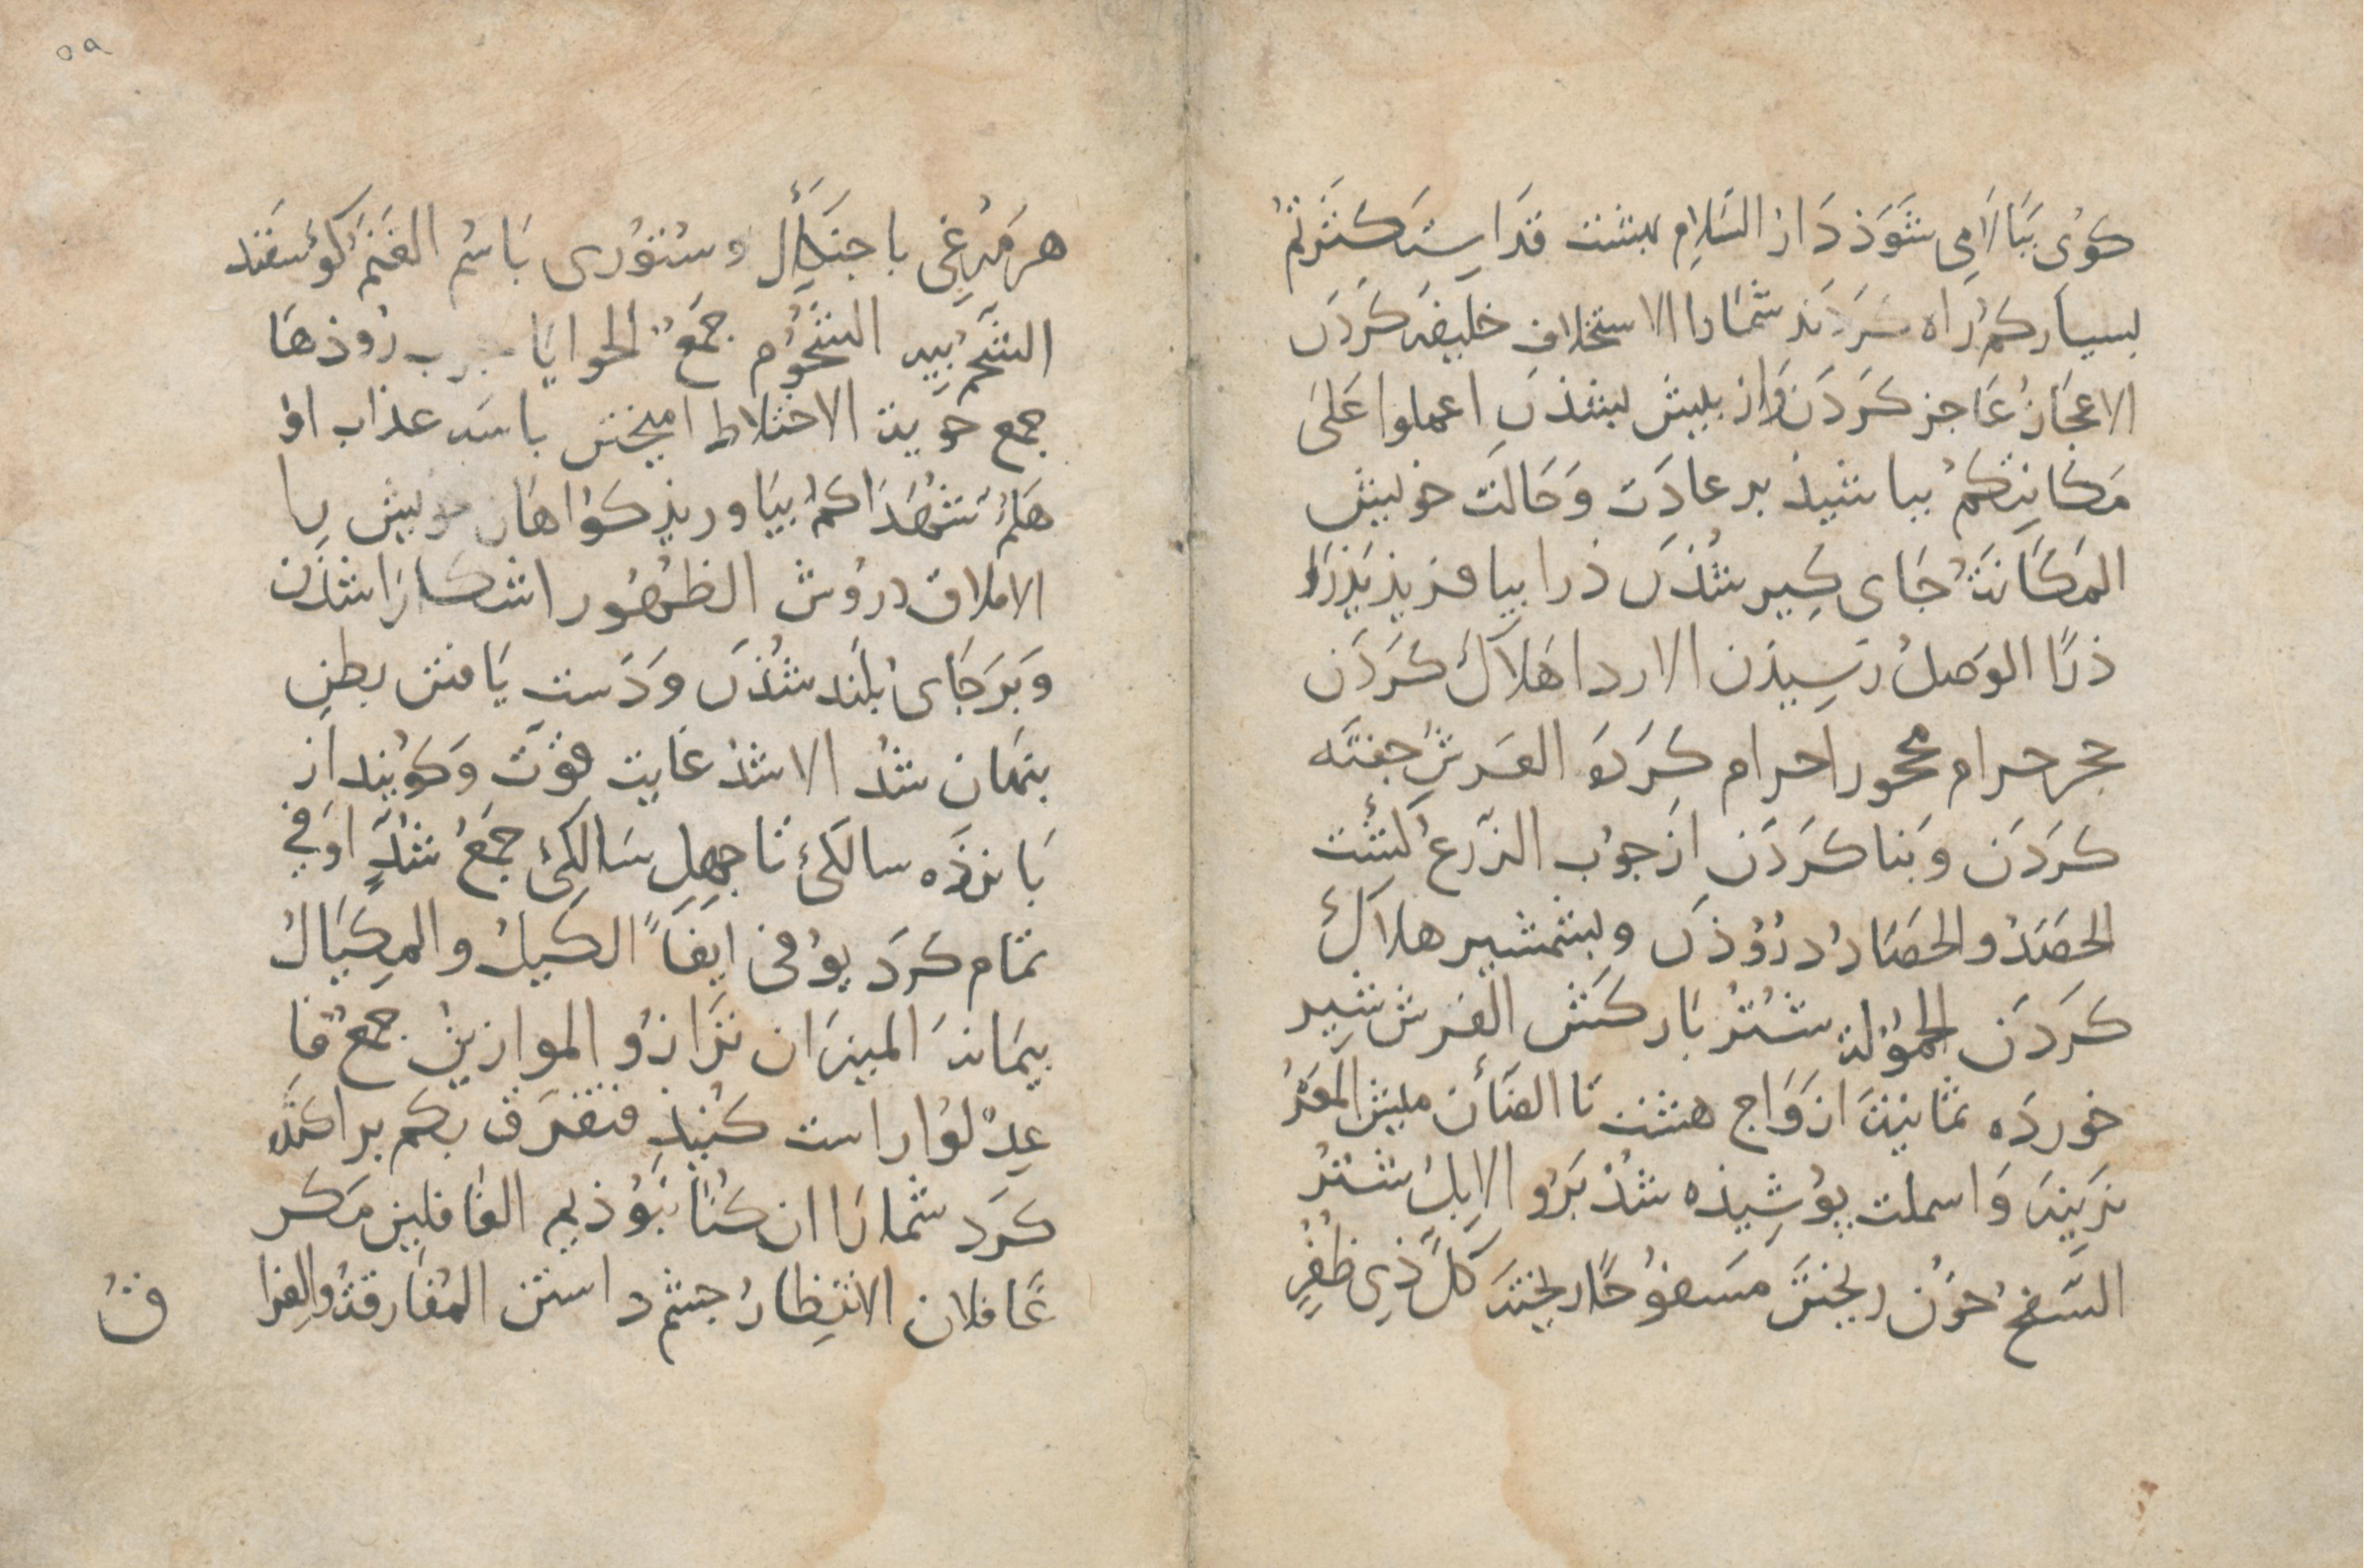 کوئی ببالا می شوذ دار السَّلام بهشت قد استکثرتم
بسیار کم راه کردند شما را الاستخلاف خلیفه کردن
الاعجاز عاجز کردن واز بیش بشذن اعملوا علی
مکانتکم بباشیذ بر عادت و حالت خویش
المکانة جای گیر شذن ذرا بیافریذ یذرأ
ذرًا الوصل رسیذن الاردا هلاک کردن
حجر حرام محجورا حرام کرده العرش جفته
کردن و بنا کردن از چوب الزرع کشت
الحصد والحصاد دروذن و بشمشیر هلاک
کردن الحمولة شتر بارکش الفرش شیر
خورده ثمانیة ازواج هشت تا الضأن میش المعز
نرینه و اسملت پوشیذه شذ برو الابل شتر
السفح خون ریختن مسفوحًا ریخته کل ذی ظفر
هر مرغی با جنگال و ستوری باسم الغنم گوسفند
الشحم پیه الشحوم جمع الحوایا چرب روذها
جمع حویة الاختلاط امیختن باسه عذاب او
هلم شهداکم بیاوریذ گواهان خویش را
الاملاق دروش الظهور اشکارا شذن
و بر جای بلند شذن و دست یافتن بطن
پنهان شذ الاشد غایت قوت و گویند از
پانزده سالگی تا چهل سالگی جمع شذ اوفی
تمام کرد یوفی ایفاً الکیل والمکیال
پیمانه المیزان ترازو الموازین جمع فا
عدلوا راست کنیذ فتفرق بکم پراکنده
کرد شما را ان کنا نبوذیم الغافلین مگر
غافلان الانتظار چشم داشتن المفارقة والفرا
ق
٥٩